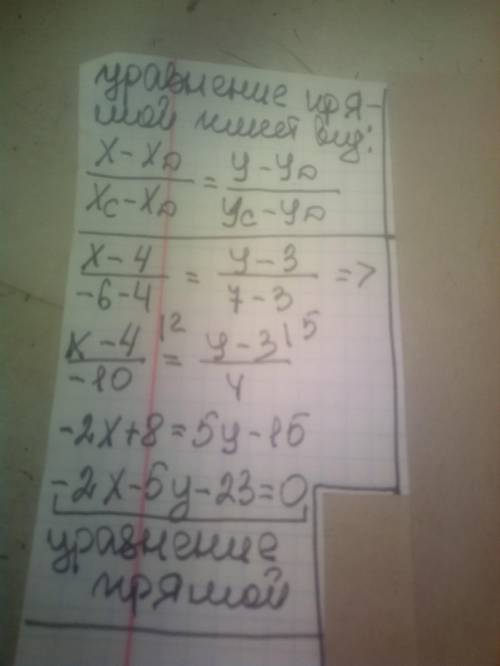 уравнение пря-
мой имеет вид:
x - x_D / x_C - x_D = y - y_D / y_C - y_D
x - 4 / -6 - 4 = y - 3 / 7 - 3 =>
x - 4 |2 / -10 = y - 3 |5 / 4
-2x+8=5y-15
-2x-5y-23=0
уравнение
прямой